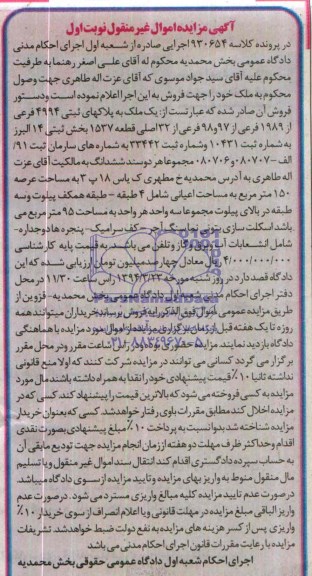 آگهی مزایده اموال غیر منقول نوبت اول
در پرونده کلاسه ۹۳۰۶۵۴ اجرایی صادره از شعبه اول اجرای احکام مدنی
دادگاه عمومی بخش محمدیه محکوم له آقای علی اصغر رهنما به ظرفیت
محکوم علیه آقای سید جواد موسوی که آقای عزت اله طاهری جهت وصول
محکوم به ملک خود را جهت فروش به این اجرا اعلام نموده است و دستور
فروش آن صادر شده که عبارتست از: یک ملک به پلاکهای ثبتی ۴۹۹۴ فرعی
از ۱۹۸۹ فرعی از ۹۷ و ۹۸ فرعی از ۳۲ اصلی قطعه ۱۵۳۷ بخش ثبتی ۱۴ البرز
به شماره ثبت ۱۰۴۳۱ و شماره ثبت ۳۳۴۴۲ به شماره های سازمان ثبت ۹۱/
الف - ۰۸۰۷۰۷ و ۰۸۰۷۰۶ مجموعا هر دو سند ششدانگ به مالکیت آقای عزت
اله طاهری به آدرس محمدیه خ مطهری ک یاس ۱۸ پ ۳ به مساحت عرصه
۱۵۰ متر مربع به مساحت اعیانی شامل ۴ طبقه - طبقه همکف پیلوت و سه
طبقه در بالای پیلوت مجموعا سه واحد هر واحد به مساحت ۹۵ متر مربع می
باشد اسکلت سازی بتونی نمای سنگ آجر - کف سرامیک - پنجره ها دوجداره -
شامل انشعابات آب و برق و گاز و تلفن می باشد به قیمت پایه کارشناسی
۴/۰۰۰/۰۰۰/۰۰۰ ریال معادل چهارصد میلیون تومان ارزیابی شده که این
دادگاه قصد دارد در روز شنبه مورخه ۱۳۹۴/۳/۲۳ راس ساعت ۱۱/۳۰ در محل
دفتر اجرای احکام شعبه اول دادگاه عمومی بخش محمدیه - قزوین از
طریق مزایده عمومی اموال فوق الذکر را به فروش برساند خریداران میتوانند همه
روزه تا یک هفته قبل از زمان برگزاری مزایده از اموال مورد مزایده با هماهنگی
دادگاه بازدید نمایند. مزایده حضوری بوده و در راس ساعت مقرر و در محل مقرر
برگزار می گردد کسانی می توانند در مزایده شرکت کنند که اولا منع قانونی
نداشته ثانیا ۱۰٪ قیمت پیشنهادی خود را نقدا به همراه داشته باشند مال مورد
مزایده به کسی فروخته می شود که بالاترین قیمت را پیشنهاد کند. کسی که در
مزایده اخلال کند مطابق مقررات با وی رفتار خواهد شد. کسی که بعنوان خریدار
مزایده شناخته شد بدوا نسبت به پرداخت ۱۰٪ مبلغ پیشنهادی بصورت نقدی
اقدام و حداکثر ظرف مهلت دو هفته از زمان انجام مزایده جهت تودیع مابقی آن
به حساب سپرده دادگستری اقدام کند انتقال سند اموال غیر منقول و یا تسلیم
مال منقول منوط به واریز بهای مزایده و تایید مزایده از سوی دادگاه میباشد.
در صورت عدم تایید مزایده کلیه مبالغ واریزی مسترد می شود. در صورت عدم
واریز الباقی مبلغ مزایده در مهلت قانونی و یا اعلام انصراف از سوی خریدار ۱۰٪
واریزی پس از کسر هزینه های مزایده به نفع دولت ضبط خواهد شد. تشریفات
مزایده با رعایت مقررات قانون اجرای احکام مدنی می باشد
اجرای احکام شعبه اول دادگاه عمومی حقوقی بخش محمدیه